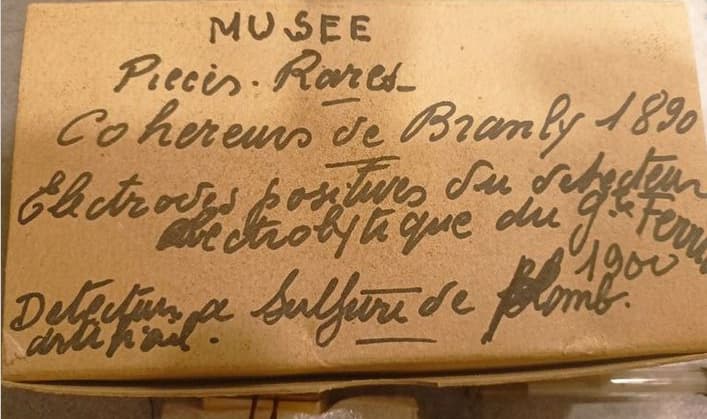 MUSEE
Pieces. Rares_
Cohereurs de Branly 1890
Electrodes positives du detecteur
electrolytique du gle Ferri
1900
Detecteur a Sulfure de Plomb.
artificiel.